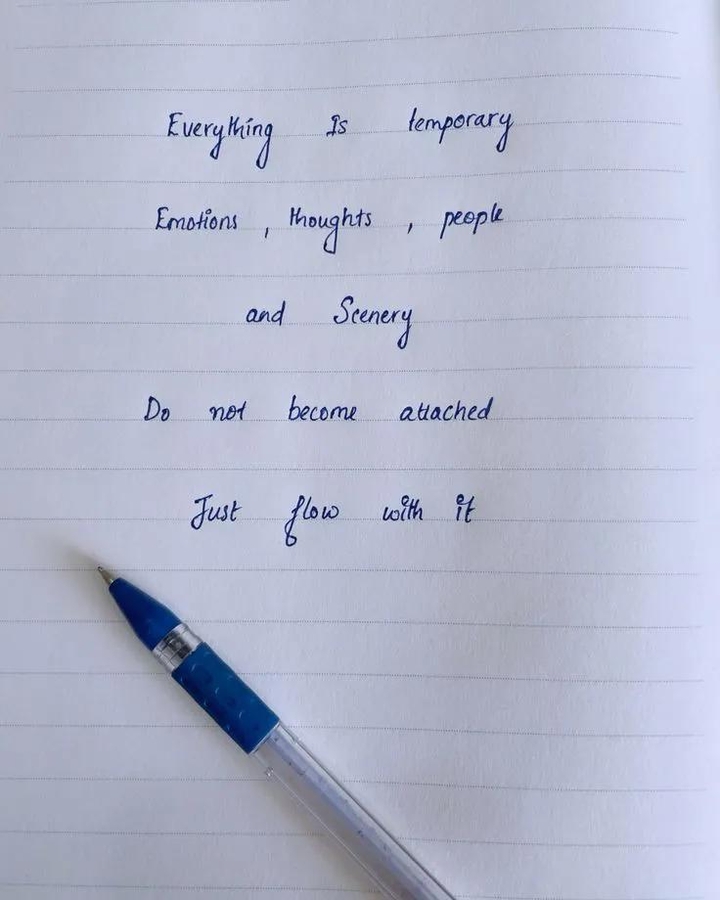 Everything Is temporary
Emotions , thoughts , people
and Scenery
Do not become attached
Just flow with it